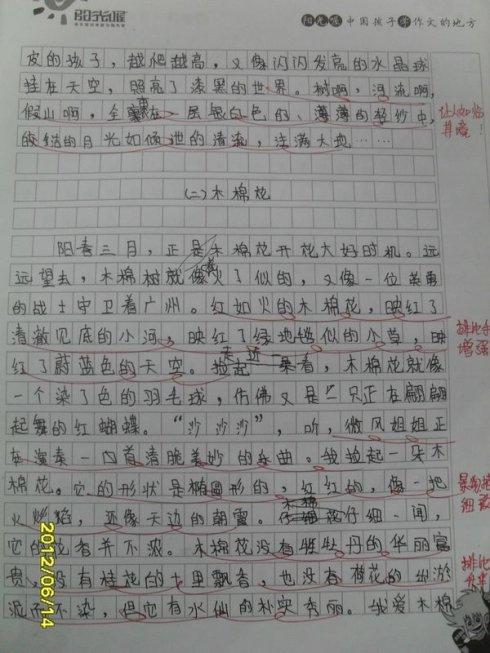 阳光喔
阳光喔 中国孩子学作文的地方
皮的孩子，越爬越高，又像闪闪发亮的水晶球
挂在天空，照亮了漆黑的世界。树啊，河流啊，
假山啊，全笼在一层银白色的、薄薄的轻纱中，
皎洁的月光如倾泄的清流，注满大地……
让人如临其境！
（二）木棉花
阳春三月，正是木棉花开花大好时机。远
远望去，木棉树就像着火了似的，又像一位英勇
的战士守卫着广州。红如火的木棉花，映红了
清澈见底的小河，映红了绿地毯似的小草，映
排比手
增强
红了蔚蓝色的天空。走近一来看，木棉花就像
一个染了色的羽毛球，仿佛又是一只正在翩翩
起舞的红蝴蝶。“沙沙沙”，听，微风姐姐正
在演奏一内首清脆美妙的乐曲。我捡起一朵木
棉花。它的形状是椭圆形的，红红的，像一把
细致
火焰，还像天边的朝霞。木棉花仔细一闻，
它的花香并不浓。木棉花没有牡丹的华丽富
贵，没有桂花的十里飘香，也没有荷花的纵淤
排比
泥而不染，但它有水仙的朴实秀丽。我爱木棉
2012/06/14